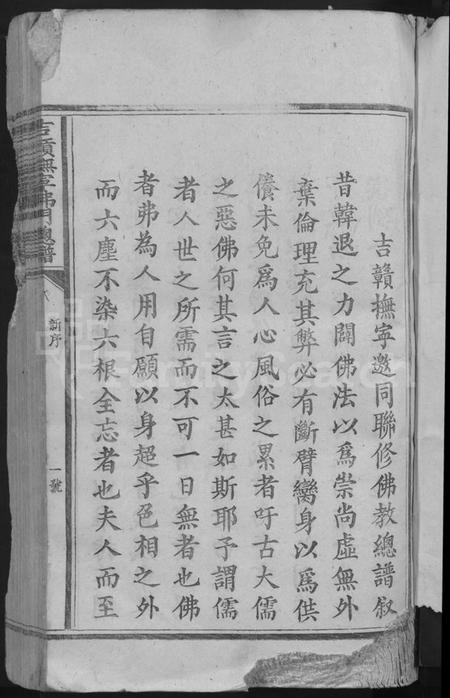 吉贛撫寧邀同聯修佛教總譜敘
昔韓退之力闢佛法以爲崇尚虛無外
棄倫理充其弊必有斷臂臠身以爲供
儐未免爲人心風俗之累者吁古大儒
之惡佛何其言之太甚如斯耶予謂儒
者人世之所需而不可一日無者也佛
者弗為人用自願以身超乎色相之外
而六塵不染六根全忘者也夫人而至
吉贛撫寧佛門總譜
新序
一號
FamilySearch